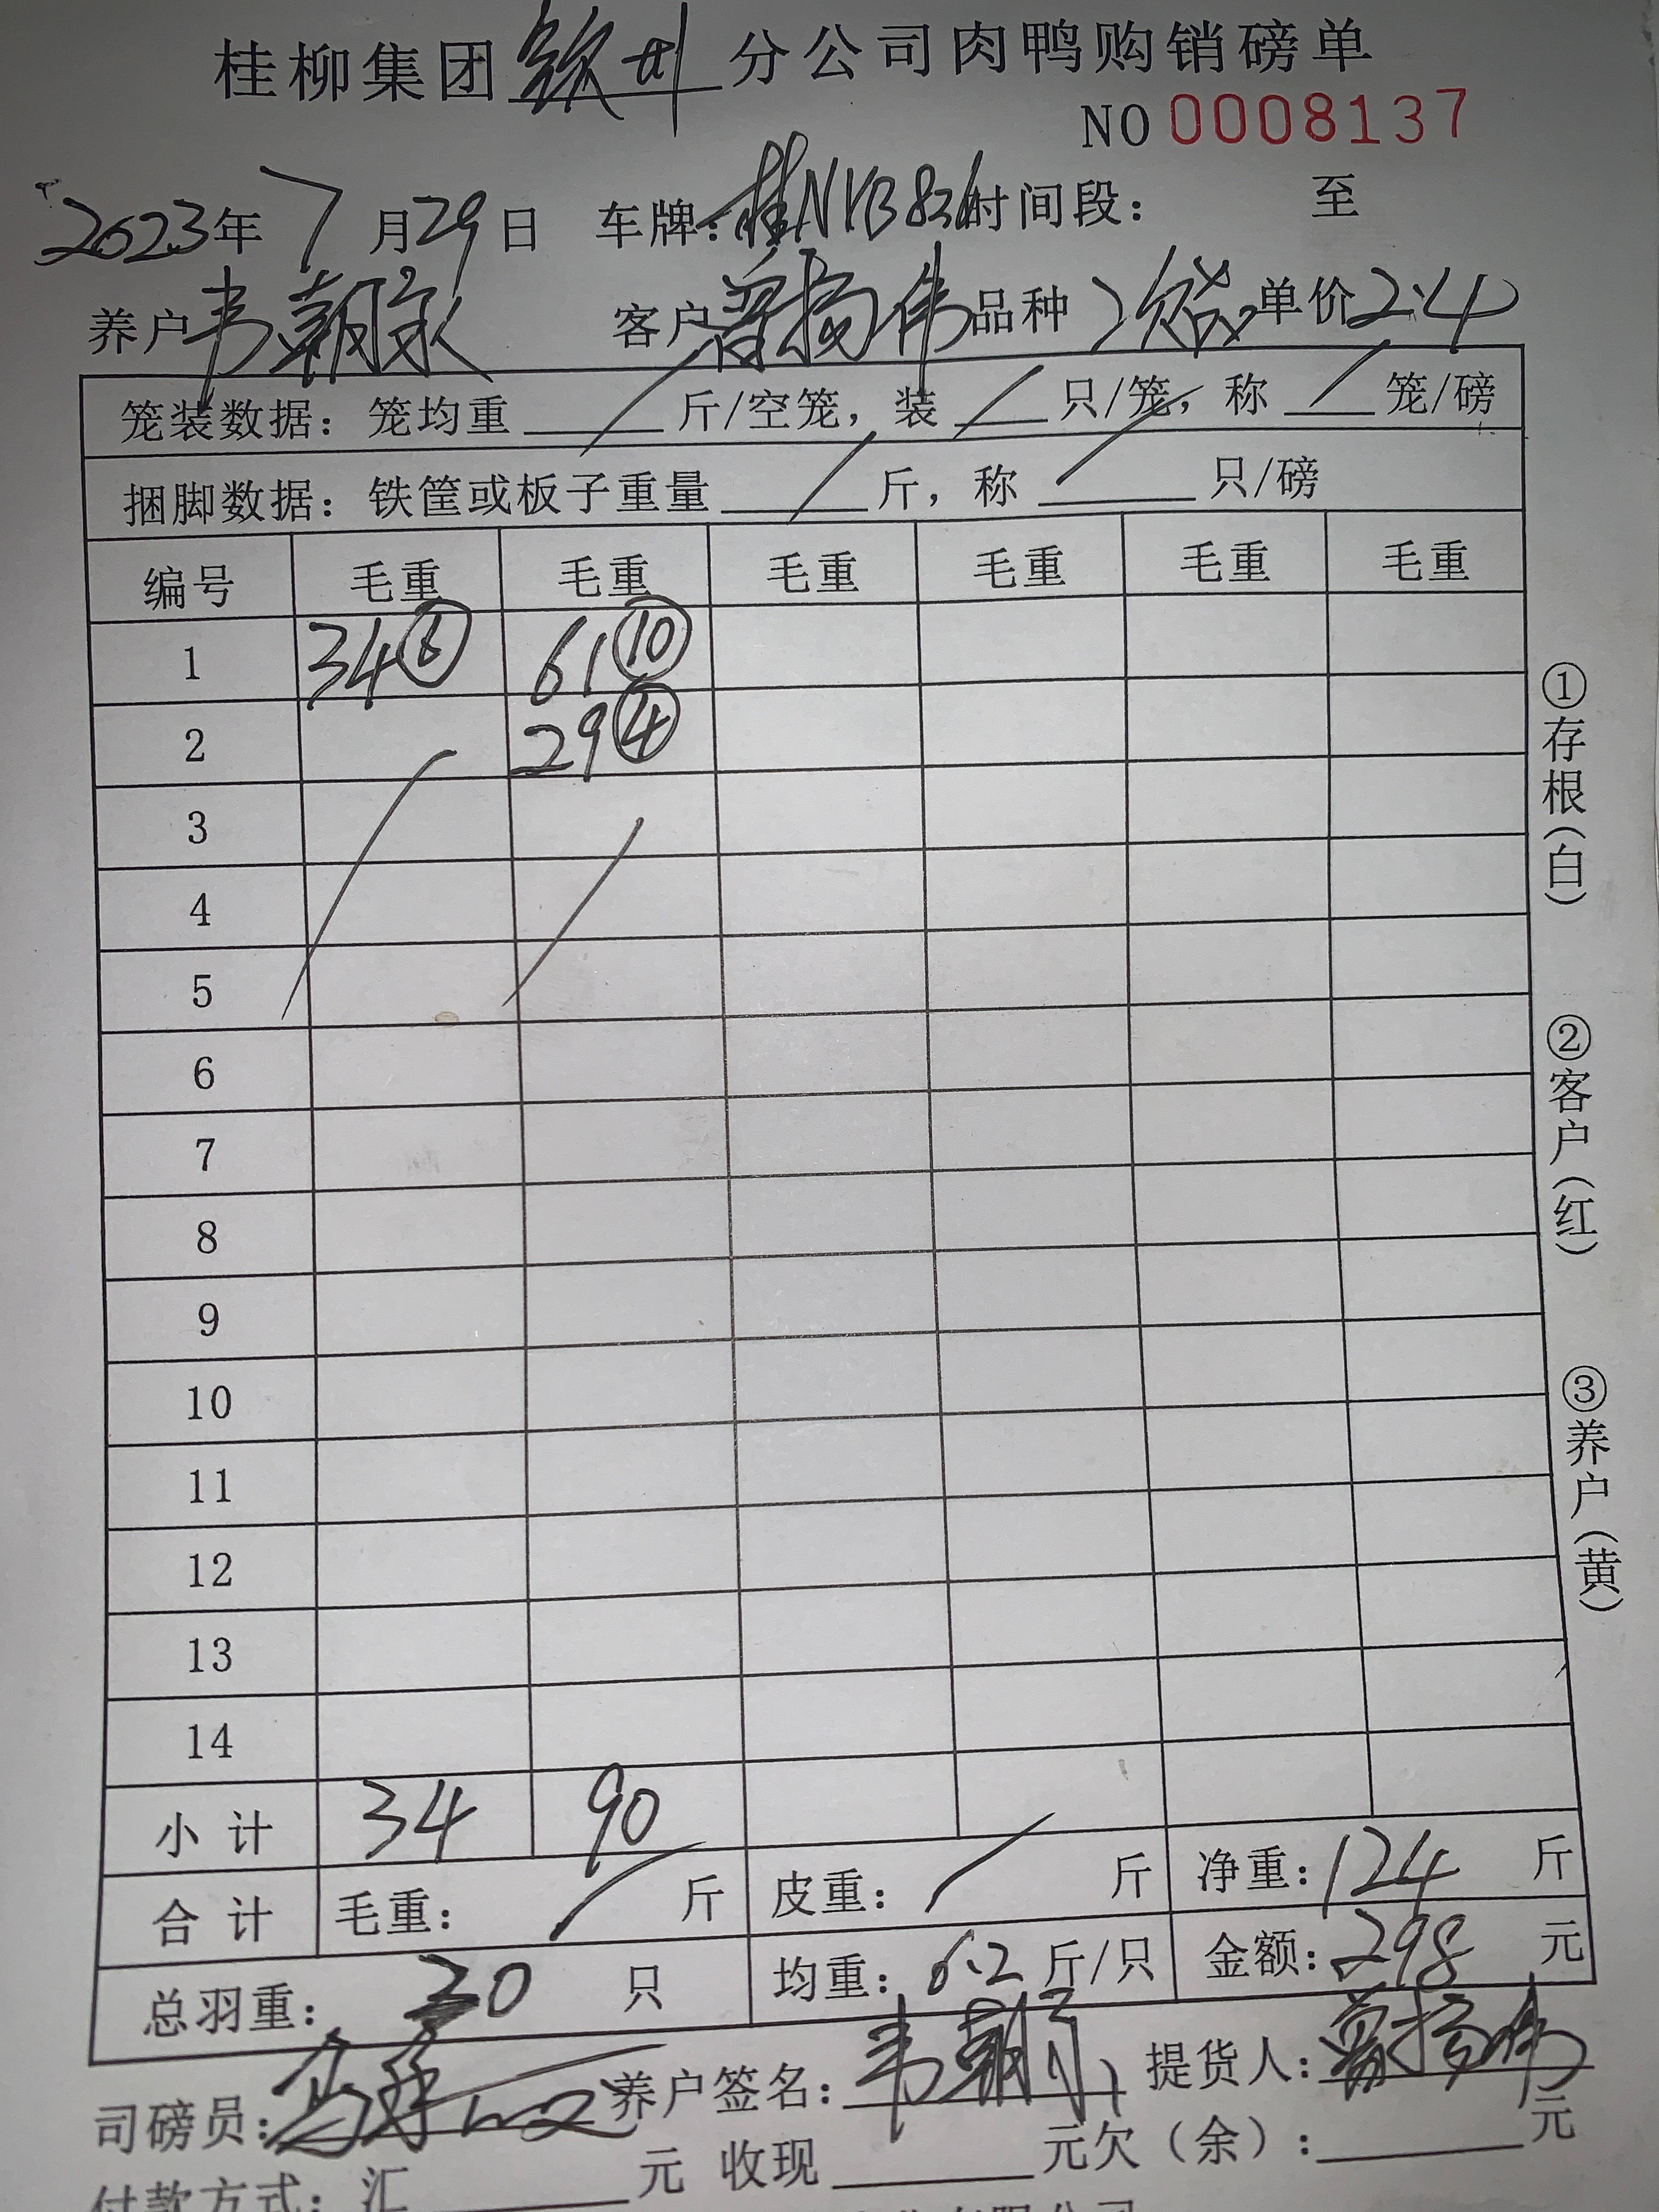 桂柳集团钦州分公司肉鸭购销磅单
NO 0008137
2023年7月29日 车牌:桂NYB826时间段: 至
养户韦朝 客户曾扬伟品种 次成单价2.4
笼装数据:笼均重 斤/空笼,装 只/笼,称 笼/磅
捆脚数据:铁筐或板子重量 斤,称 只/磅
编号 毛重 毛重 毛重 毛重 毛重 毛重
1 34⑥ 61⑩
2 29④
3
4
5
6
7
8
9
10
11
12
13
14
小计 34 90
合计 毛重: 斤 皮重: 斤 净重:124 斤
总羽重: 20 只 均重:6.2斤/只 金额:298 元
司磅员: 养户签名:韦朝 提货人:曾扬伟
付款方式:汇 元 收现 元欠(余): 元
①存根(白)
②客户(红)
③养户(黄)